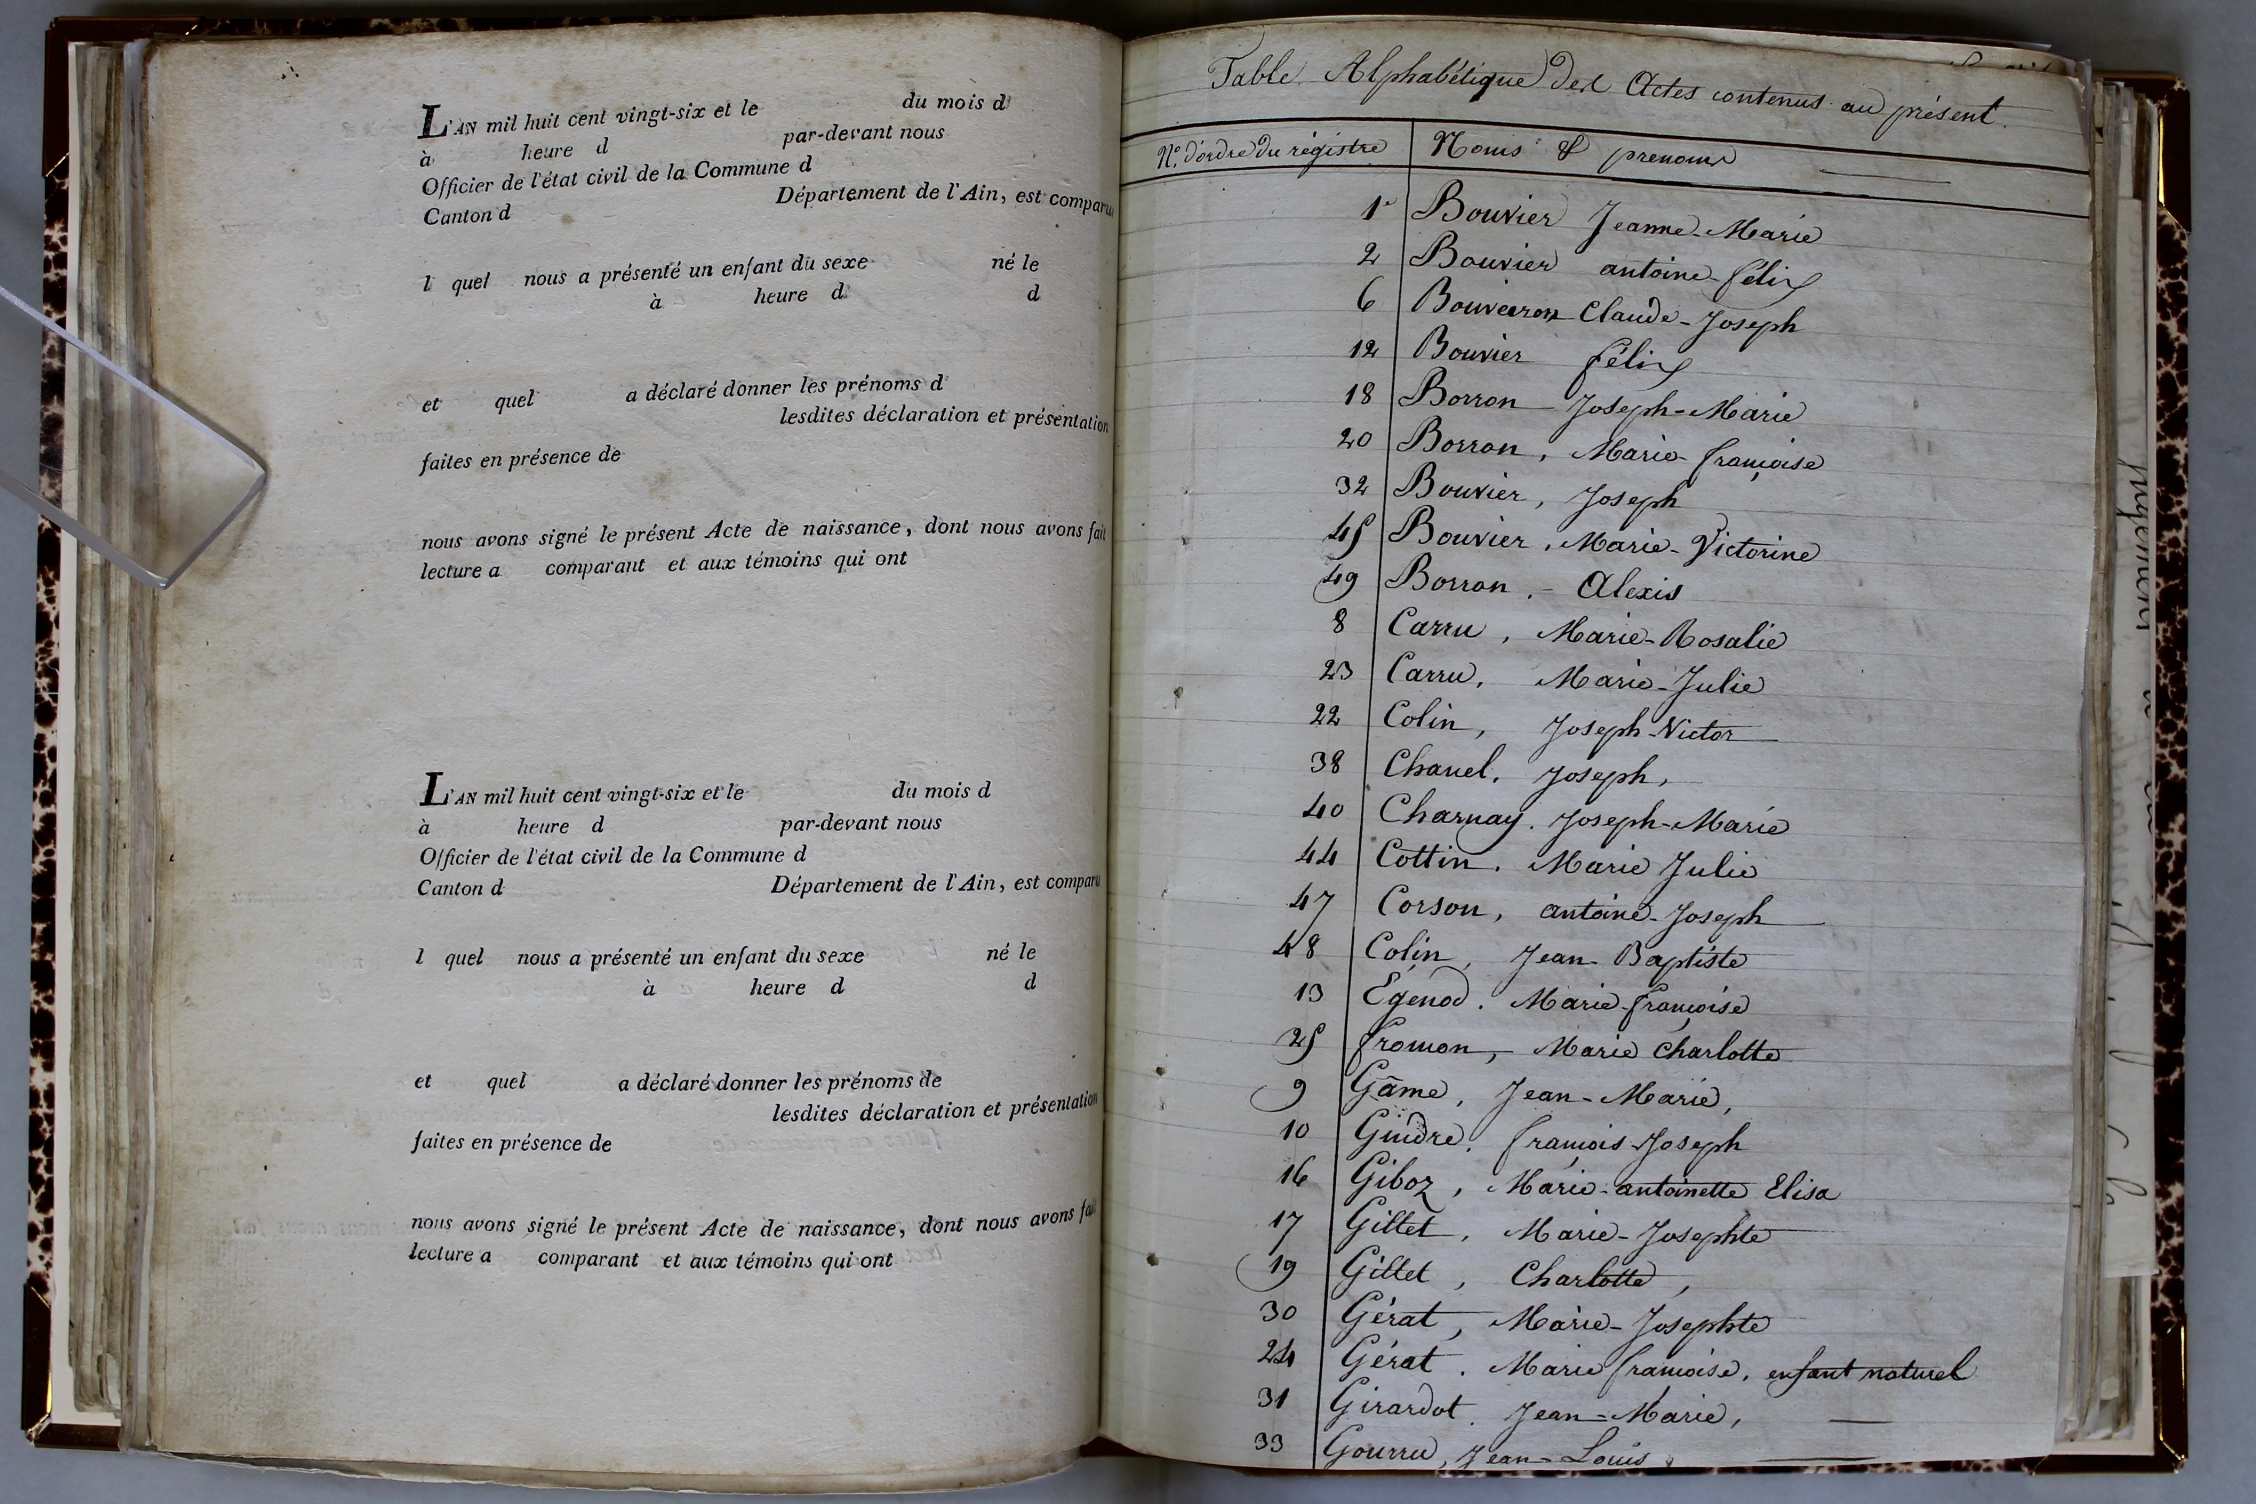 L'AN mil huit cent vingt-six et le du mois d
à heure d par-devant nous
Officier de l'état civil de la Commune d
Canton d Département de l'Ain, est comparu
l quel nous a présenté un enfant du sexe né le
à heure d d
et quel a déclaré donner les prénoms d
lesdites déclaration et présentation
faites en présence de
nous avons signé le présent Acte de naissance, dont nous avons fait
lecture a comparant et aux témoins qui ont
L'AN mil huit cent vingt-six et le du mois d
à heure d par-devant nous
Officier de l'état civil de la Commune d
Canton d Département de l'Ain, est comparu
l quel nous a présenté un enfant du sexe né le
à heure d d
et quel a déclaré donner les prénoms de
lesdites déclaration et présentation
faites en présence de
nous avons signé le présent Acte de naissance, dont nous avons fait
lecture a comparant et aux témoins qui ont
Table Alphabétique des Actes contenus au présent
N.º d'ordre du régistre Noms & prenoms
1 Bouvier Jeanne-Marie
2 Bouvier antoine-félix
6 Bouveiron Claude-Joseph
12 Bouvier félix
18 Borron Joseph-Marie
20 Borron, Marie-françoise
32 Bouvier, Joseph
45 Bouvier, Marie-Victorine
49 Borron.- Alexis
8 Carru, Marie-Rosalie
23 Carru, Marie-Julie
22 Colin, Joseph-Victor
38 Chanel, Joseph,
40 Charnay. Joseph-Marie
44 Cottin. Marie Julie
47 Corson, antoine-Joseph
48 Colin, Jean-Baptiste
13 Egénod. Marie-françoise
25 fromon, Marie Charlotte
9 Gâme, Jean-Marie,
10 Guidre, françois-Joseph
16 Giboz, Marie-antoinette Elisa
17 Gillet, Marie-Josephte
19 Gillet, Charlotte,
30 Gérat, Marie-Josephte
24 Gérat. Marie françoise, enfant naturel
31 Girardot. Jean-Marie,
33 Gourru, Jean-Louis,